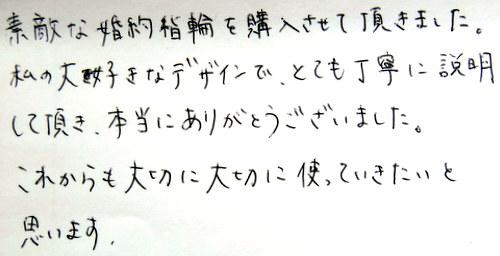 素敵な婚約指輪を購入させて頂きました。
私の大好きなデザインで、とても丁寧に説明
して頂き、本当にありがとうございました。
これからも大切に大切に使っていきたいと
思います。